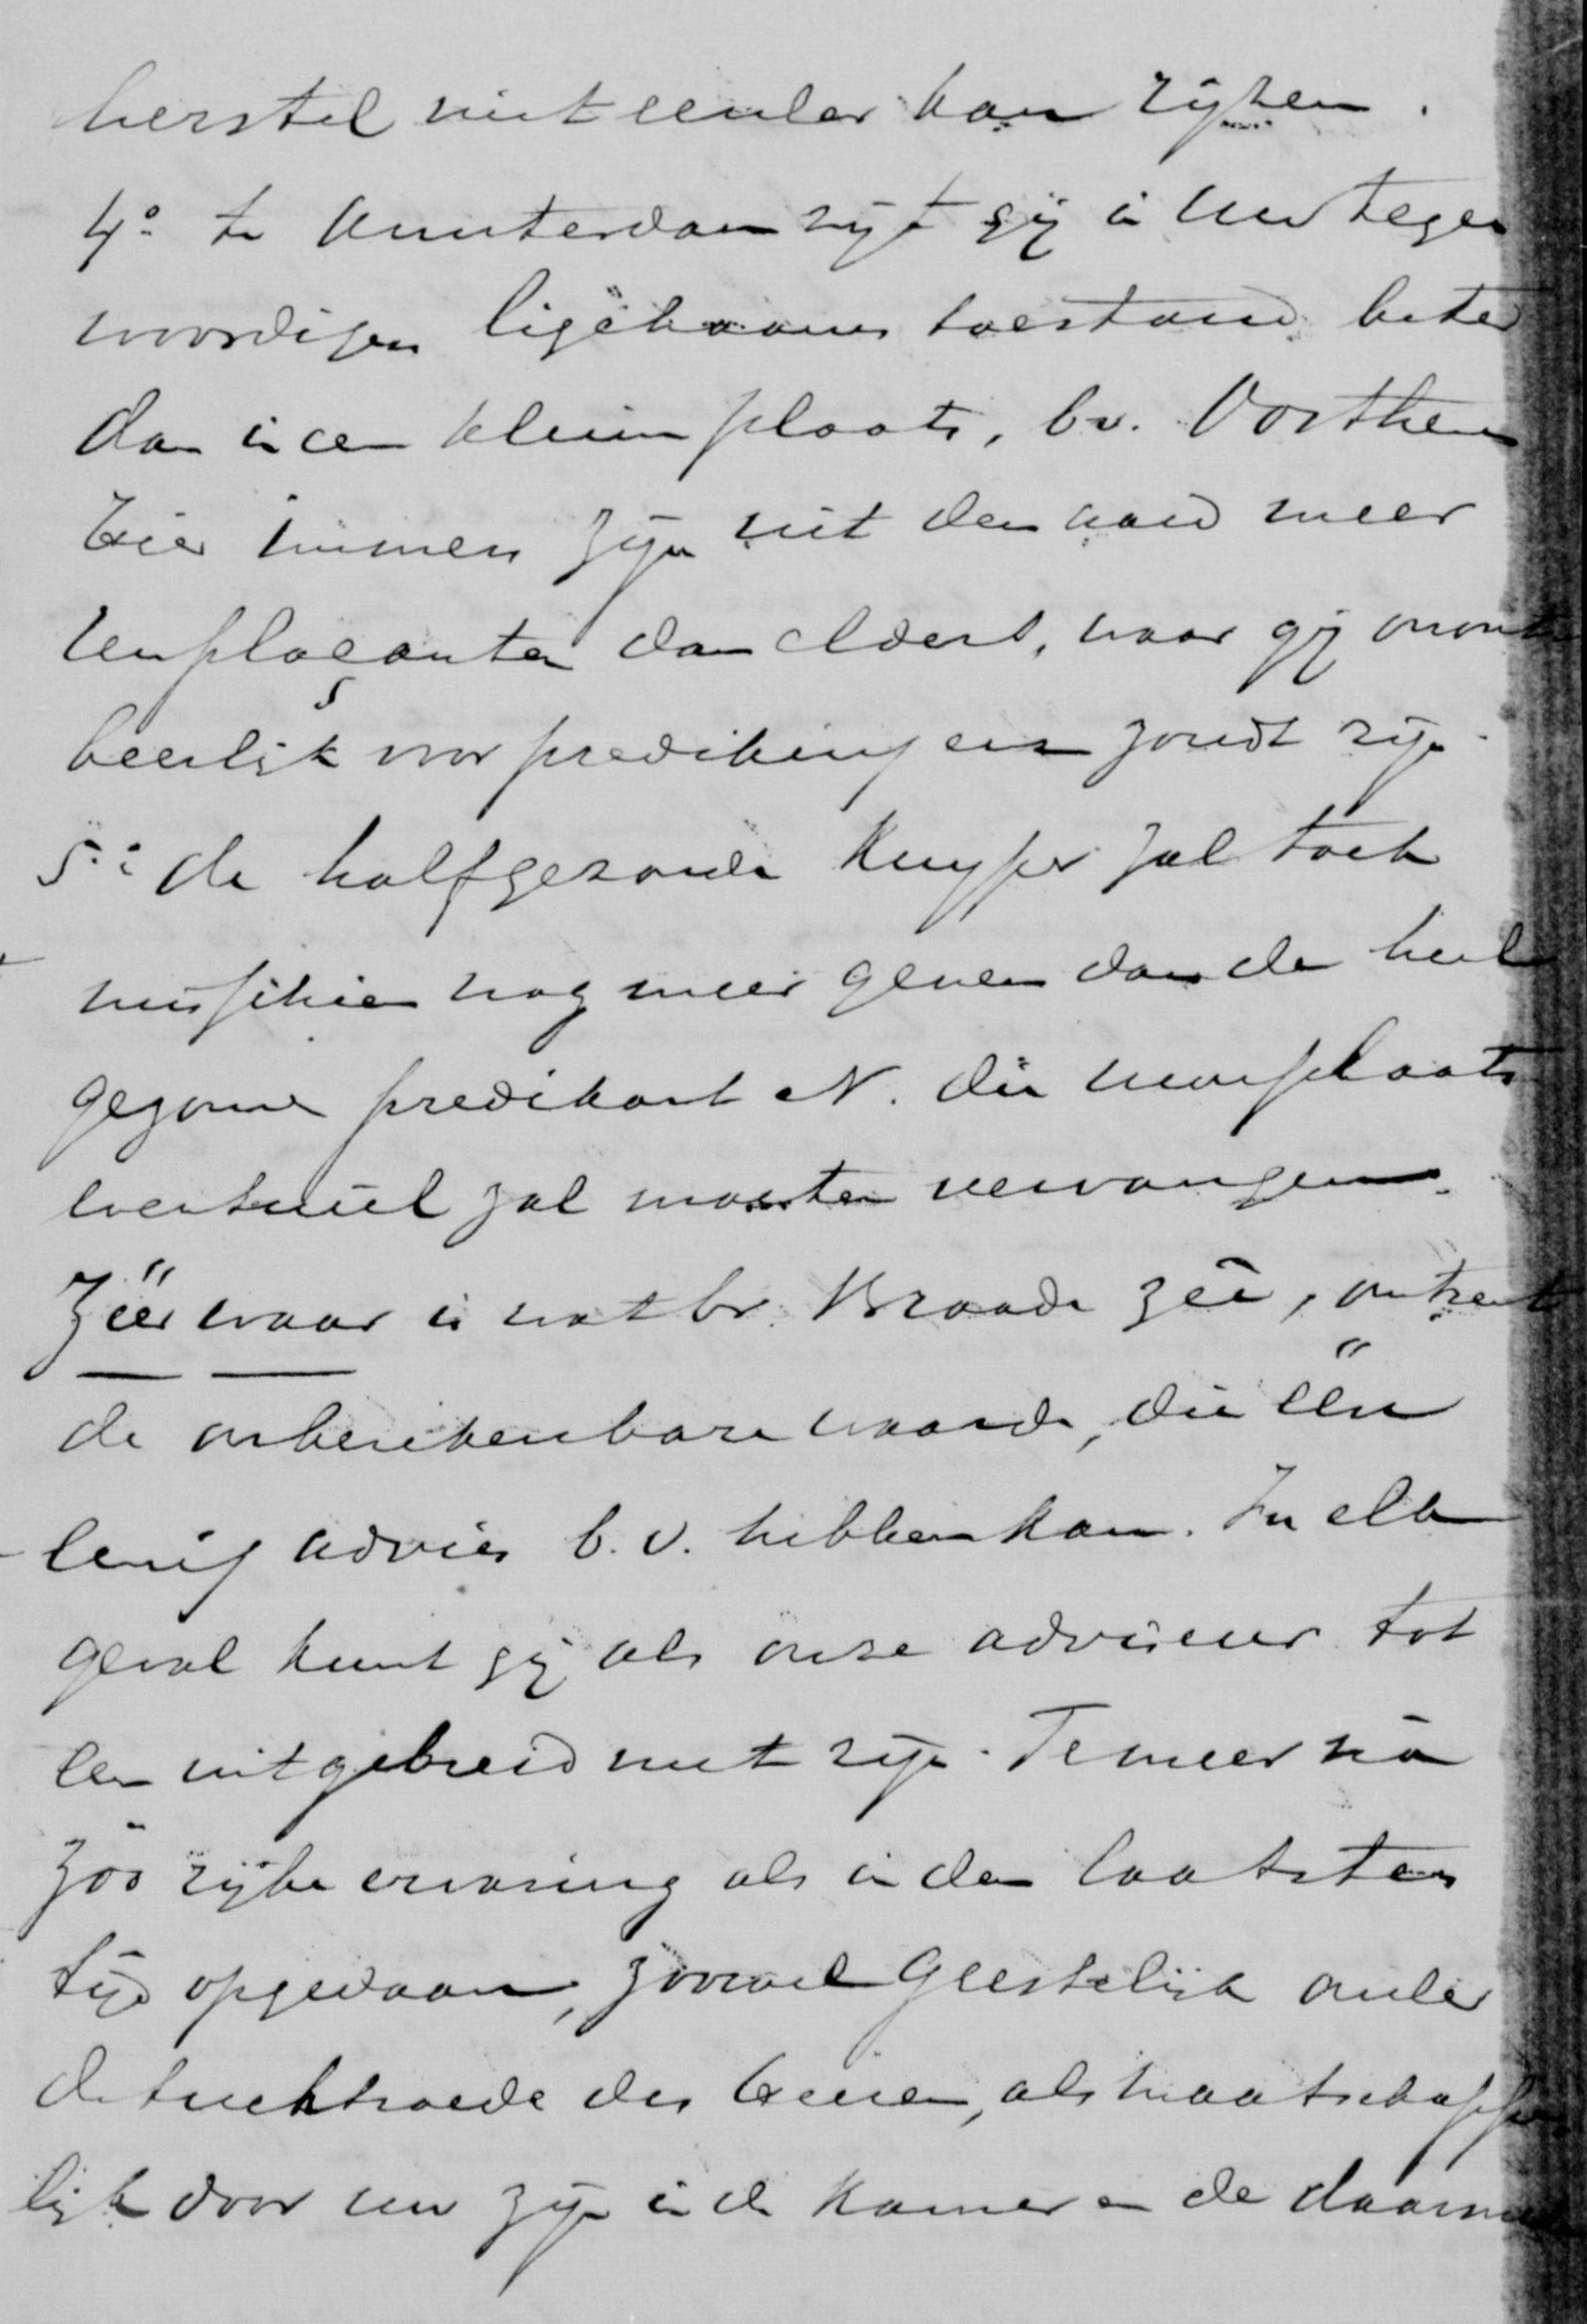 herstel niet eerder kan rijzen.
4º te Amsterdam zijt gij in uw tegen
woordigen ligchaams toestand beter
dan in een kleine plaats, bv. Oosthem
Hier immers zijn uit den aard meer
remplaçanten dan elders, waar gij onont
beerlijk voor predikingen zoudt zijn.
5º: de halfgezonde Kuyper zal toch
misschien nog meer geven dan de heel
gezonde predikant N. die uwe plaats
eventueel zal moeten vervangen.
Zéér waar is wat br. Braade zei, omtrent
de onberekenbare waarde, die één
eenig advies b.v. hebben kan. In elk
geval kunt gij als onze adviseur tot
een uitgebreid nut zijn. Te meer na
zóó rijke ervaring als in den laatsten
tijd opgedaan, zoowel geestelijk onder
de tuchtroede des Heeren, als maatschappe
lijk door uw zijn in de Kamer en de daarmede